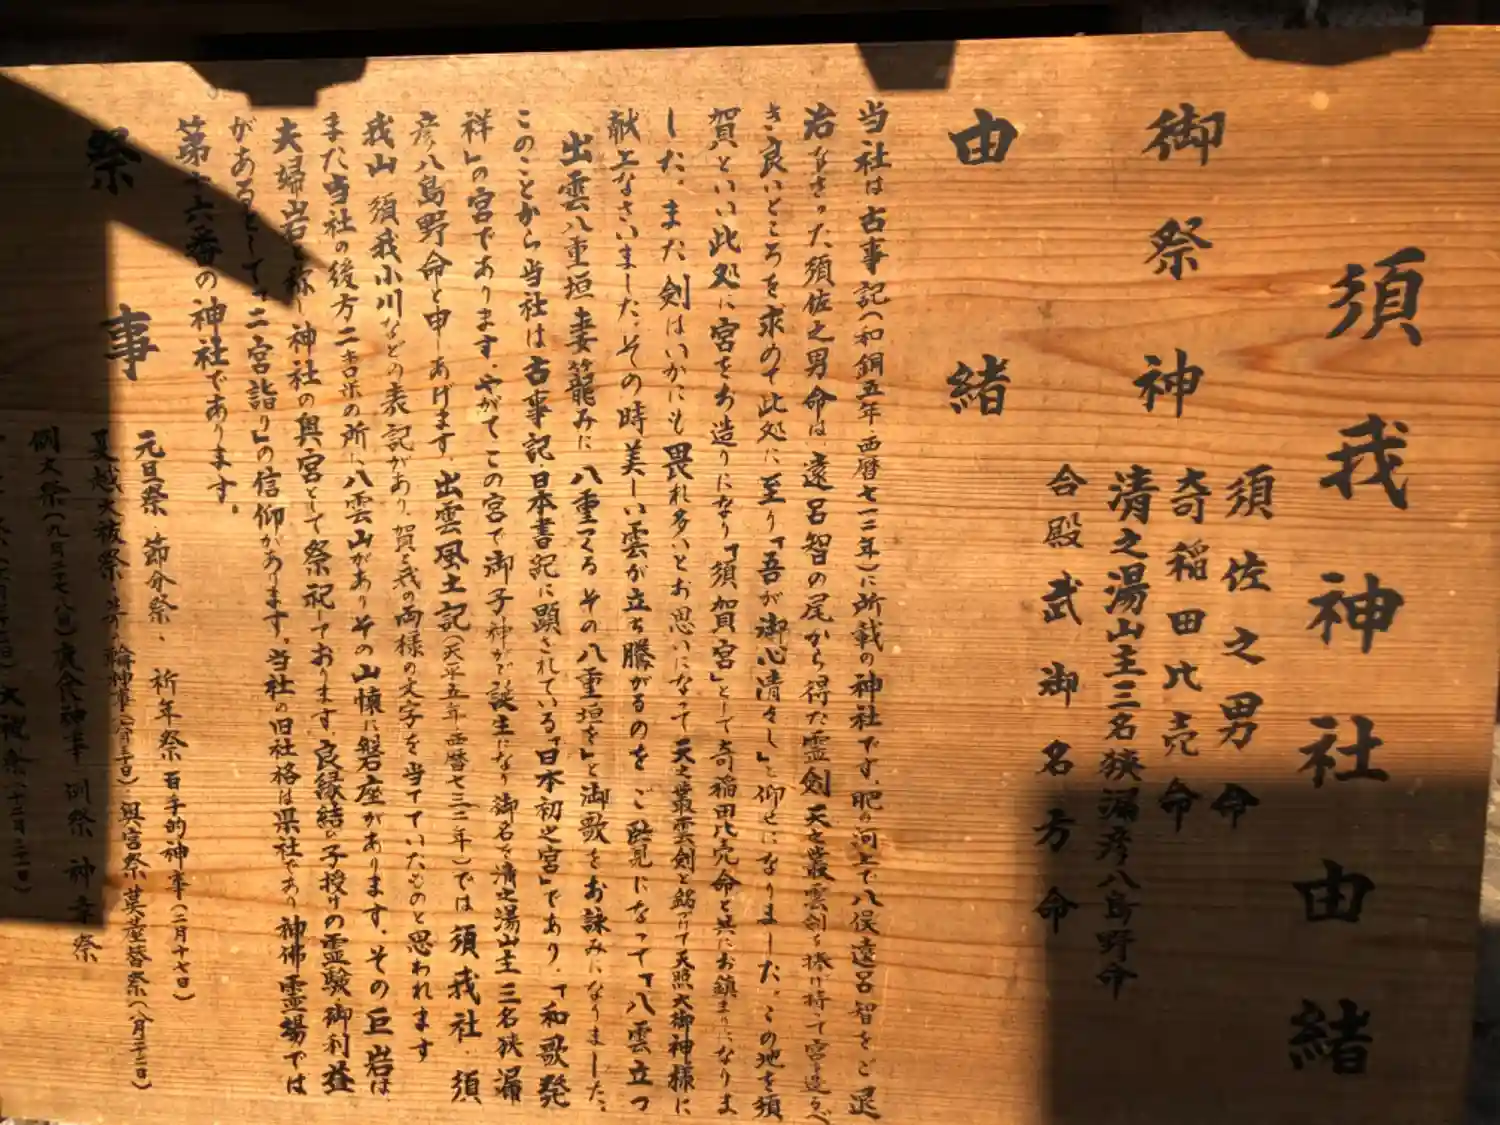 須我神社由緒
御祭神
須佐之男命
奇稲田比売命
清之湯山主三名狭漏彦八島野命
合殿 武御名方命
由緒
当社は古事記(和銅五年・西暦七一二年)に所載の神社です。肥の河上で八俣遠呂智をご退
治なさった須佐之男命は、遠呂智の尾から得た霊剣天之叢雲剣を捧げ持って宮を造るべ
き良いところを求めて此処に至り「吾が御心清々し」と仰せになりました。この地を須
賀といい此処に宮をお造りになり「須賀宮」として奇稲田比売命と共にお鎮まりになりま
した。また剣はいかにも畏れ多いとお思いになって天之叢雲剣と銘づけて天照大御神様に
献上なさいました。その時美しい雲が立ち騰がるのをご覧になって「八雲立つ
出雲八重垣 妻籠みに 八重つくる その八重垣を」と御歌をお詠みになりました。
このことから当社は古事記・日本書記に顕されている「日本初之宮」であり、「和歌発
祥」の宮であります。やがてこの宮で御子神が誕生になり御名を清之湯山主三名狭漏
彦八島野命と申しあげます。出雲風土記(天平五年・西暦七三三年)では須我社・須
我山 須我小川などの表記があり、賀と我の両様の文字を当てていたものと思われます
また当社の後方二キロ米の所に八雲山がありその山懐に磐座があります。その巨岩は
夫婦岩と称し神社の奥宮として祭祀しております。良縁結び子授けの霊験御利益
があるとして「二宮詣り」の信仰があります。当社の旧社格は県社であり 神佛霊場では
第十六番の神社であります。
祭事
元旦祭・節分祭・ 祈年祭 百手的神事(二月十七日)
夏越大祓祭・茅の輪神事(六月三十日)・奥宮祭 茣座替祭(八月二十二日)
例大祭(九月二十七八日)鹿食神事 例祭 神幸祭
大祓祭(十二月三十一日)